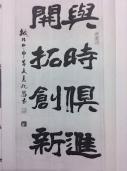 與時俱進
開拓創新